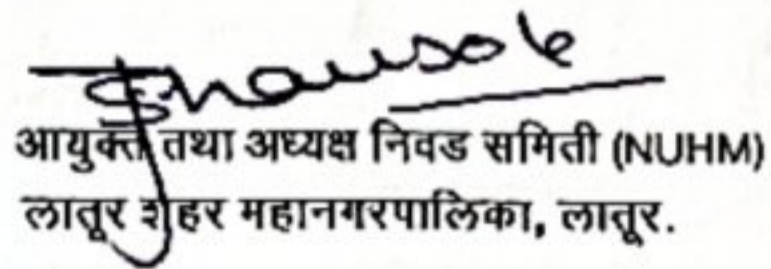 आयुक्त तथा अध्यक्ष निवड समिती (NUHM)
लातूर शहर महानगरपालिका, लातूर.